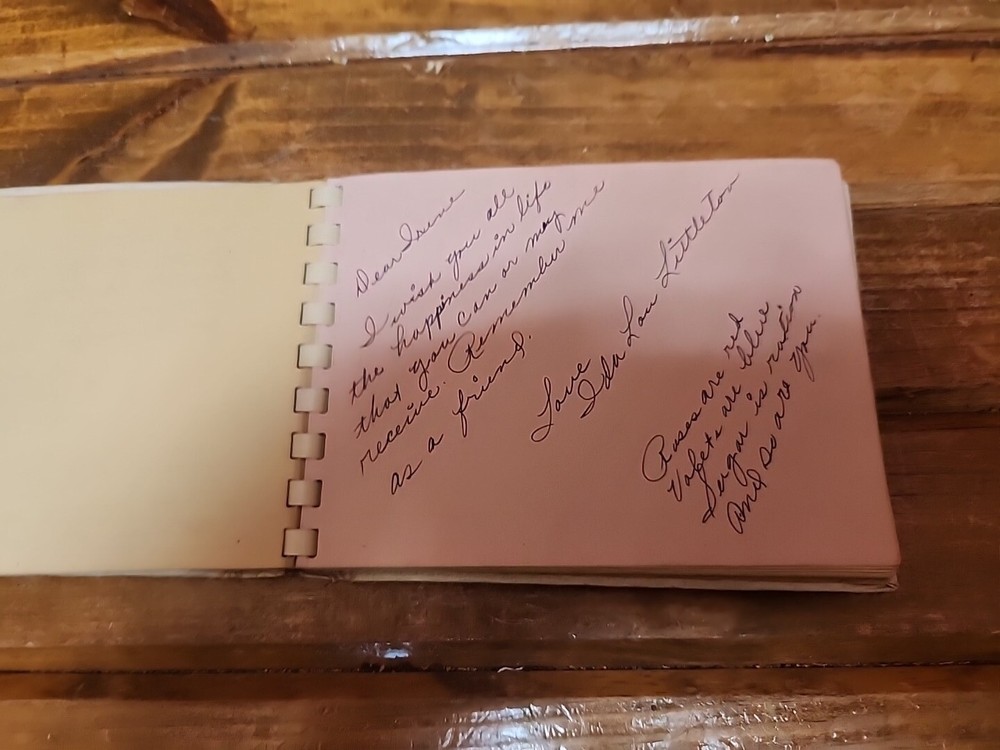 Dear Irene
I wish you all
the happiness in life
that you can or may
receive. Remember me
as a friend.
Love
Ida Lou Littleton
Roses are red
Volets are blue
Sugar is ration
And so are you.